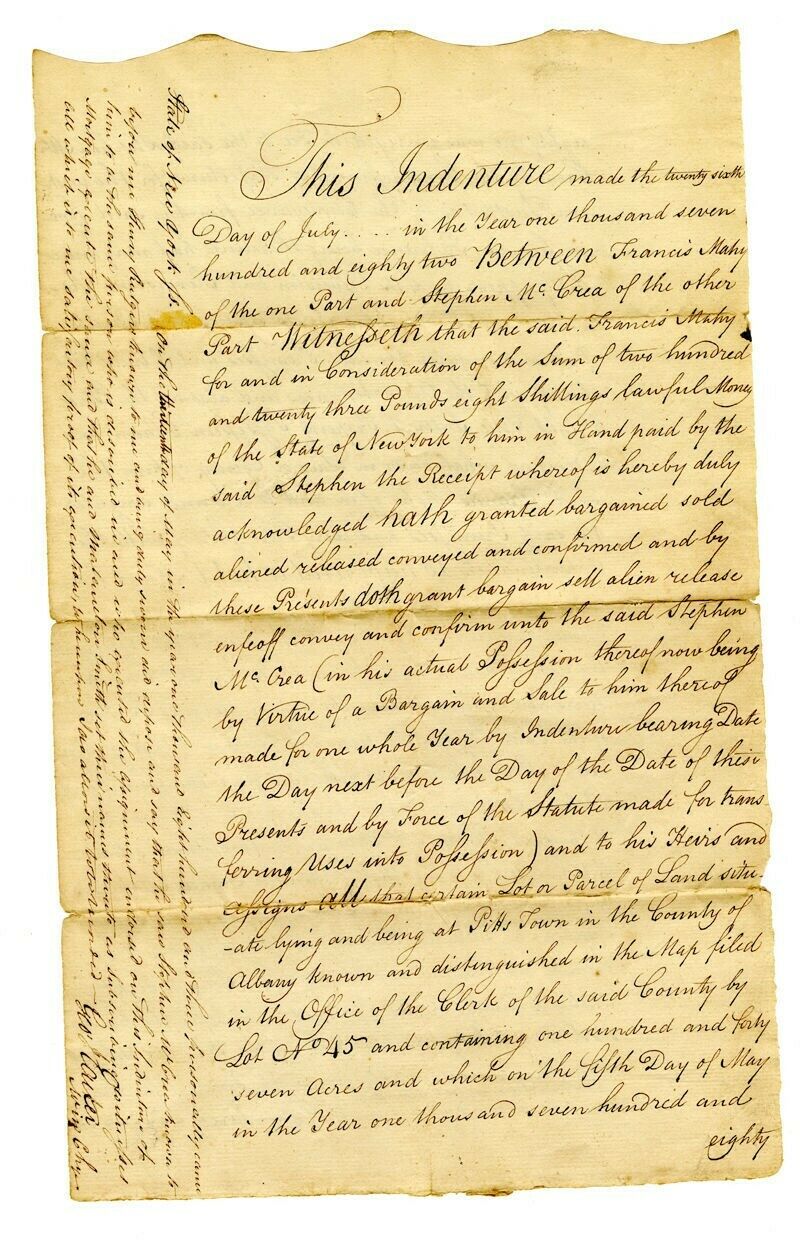 This Indenture made the twenty sixth
Day of July .... in the Year one thousand seven
hundred and eighty two Between Francis Mahy
of the one Part and Stephen Mc. Crea of the other
Part Witnesseth that the said Francis Mahy
for and in Consideration of the Sum of two hundred
and twenty three Pounds eight Shillings lawful Money
of the State of New York to him in Hand paid by the
said Stephen the Receipt whereof is hereby duly
acknowledged hath granted bargained sold
aliened released conveyed and confirmed and by
these Presents doth grant bargain sell alien release
enfeoff convey and confirm unto the said Stephen
Mc. Crea (in his actual Possession thereof now being
by Virtue of a Bargain and Sale to him thereof
made for one whole Year by Indenture bearing Date
the Day next before the Day of the Date of these
Presents and by Force of the Statute made for trans
ferring Uses into Possession) and to his Heirs and
assigns all that certain Lot or Parcel of Land situ-
-ate lying and being at Pitts Town in the County of
Albany known and distinguished in the Map filed
in the Office of the Clerk of the said County by
Lot No 45 and containing one hundred and forty
seven Acres and which on the fifth Day of May
in the Year one thousand seven hundred and
eighty
State of New York ss. On the thirteenth day of May in the year one thousand Eight hundred and three personally came
before me Henry known to me and being duly sworn did depose and say that he saw Stephen McCrea known to
him to be the same person who is described in and who executed the assignment endorsed on this Indenture of
Mortgage execute the same and that he and Smith set their names thereto as subscribing witnesses
all which is to me satisfactory proof of its execution, I therefore do allow it to be recorded
Geo.